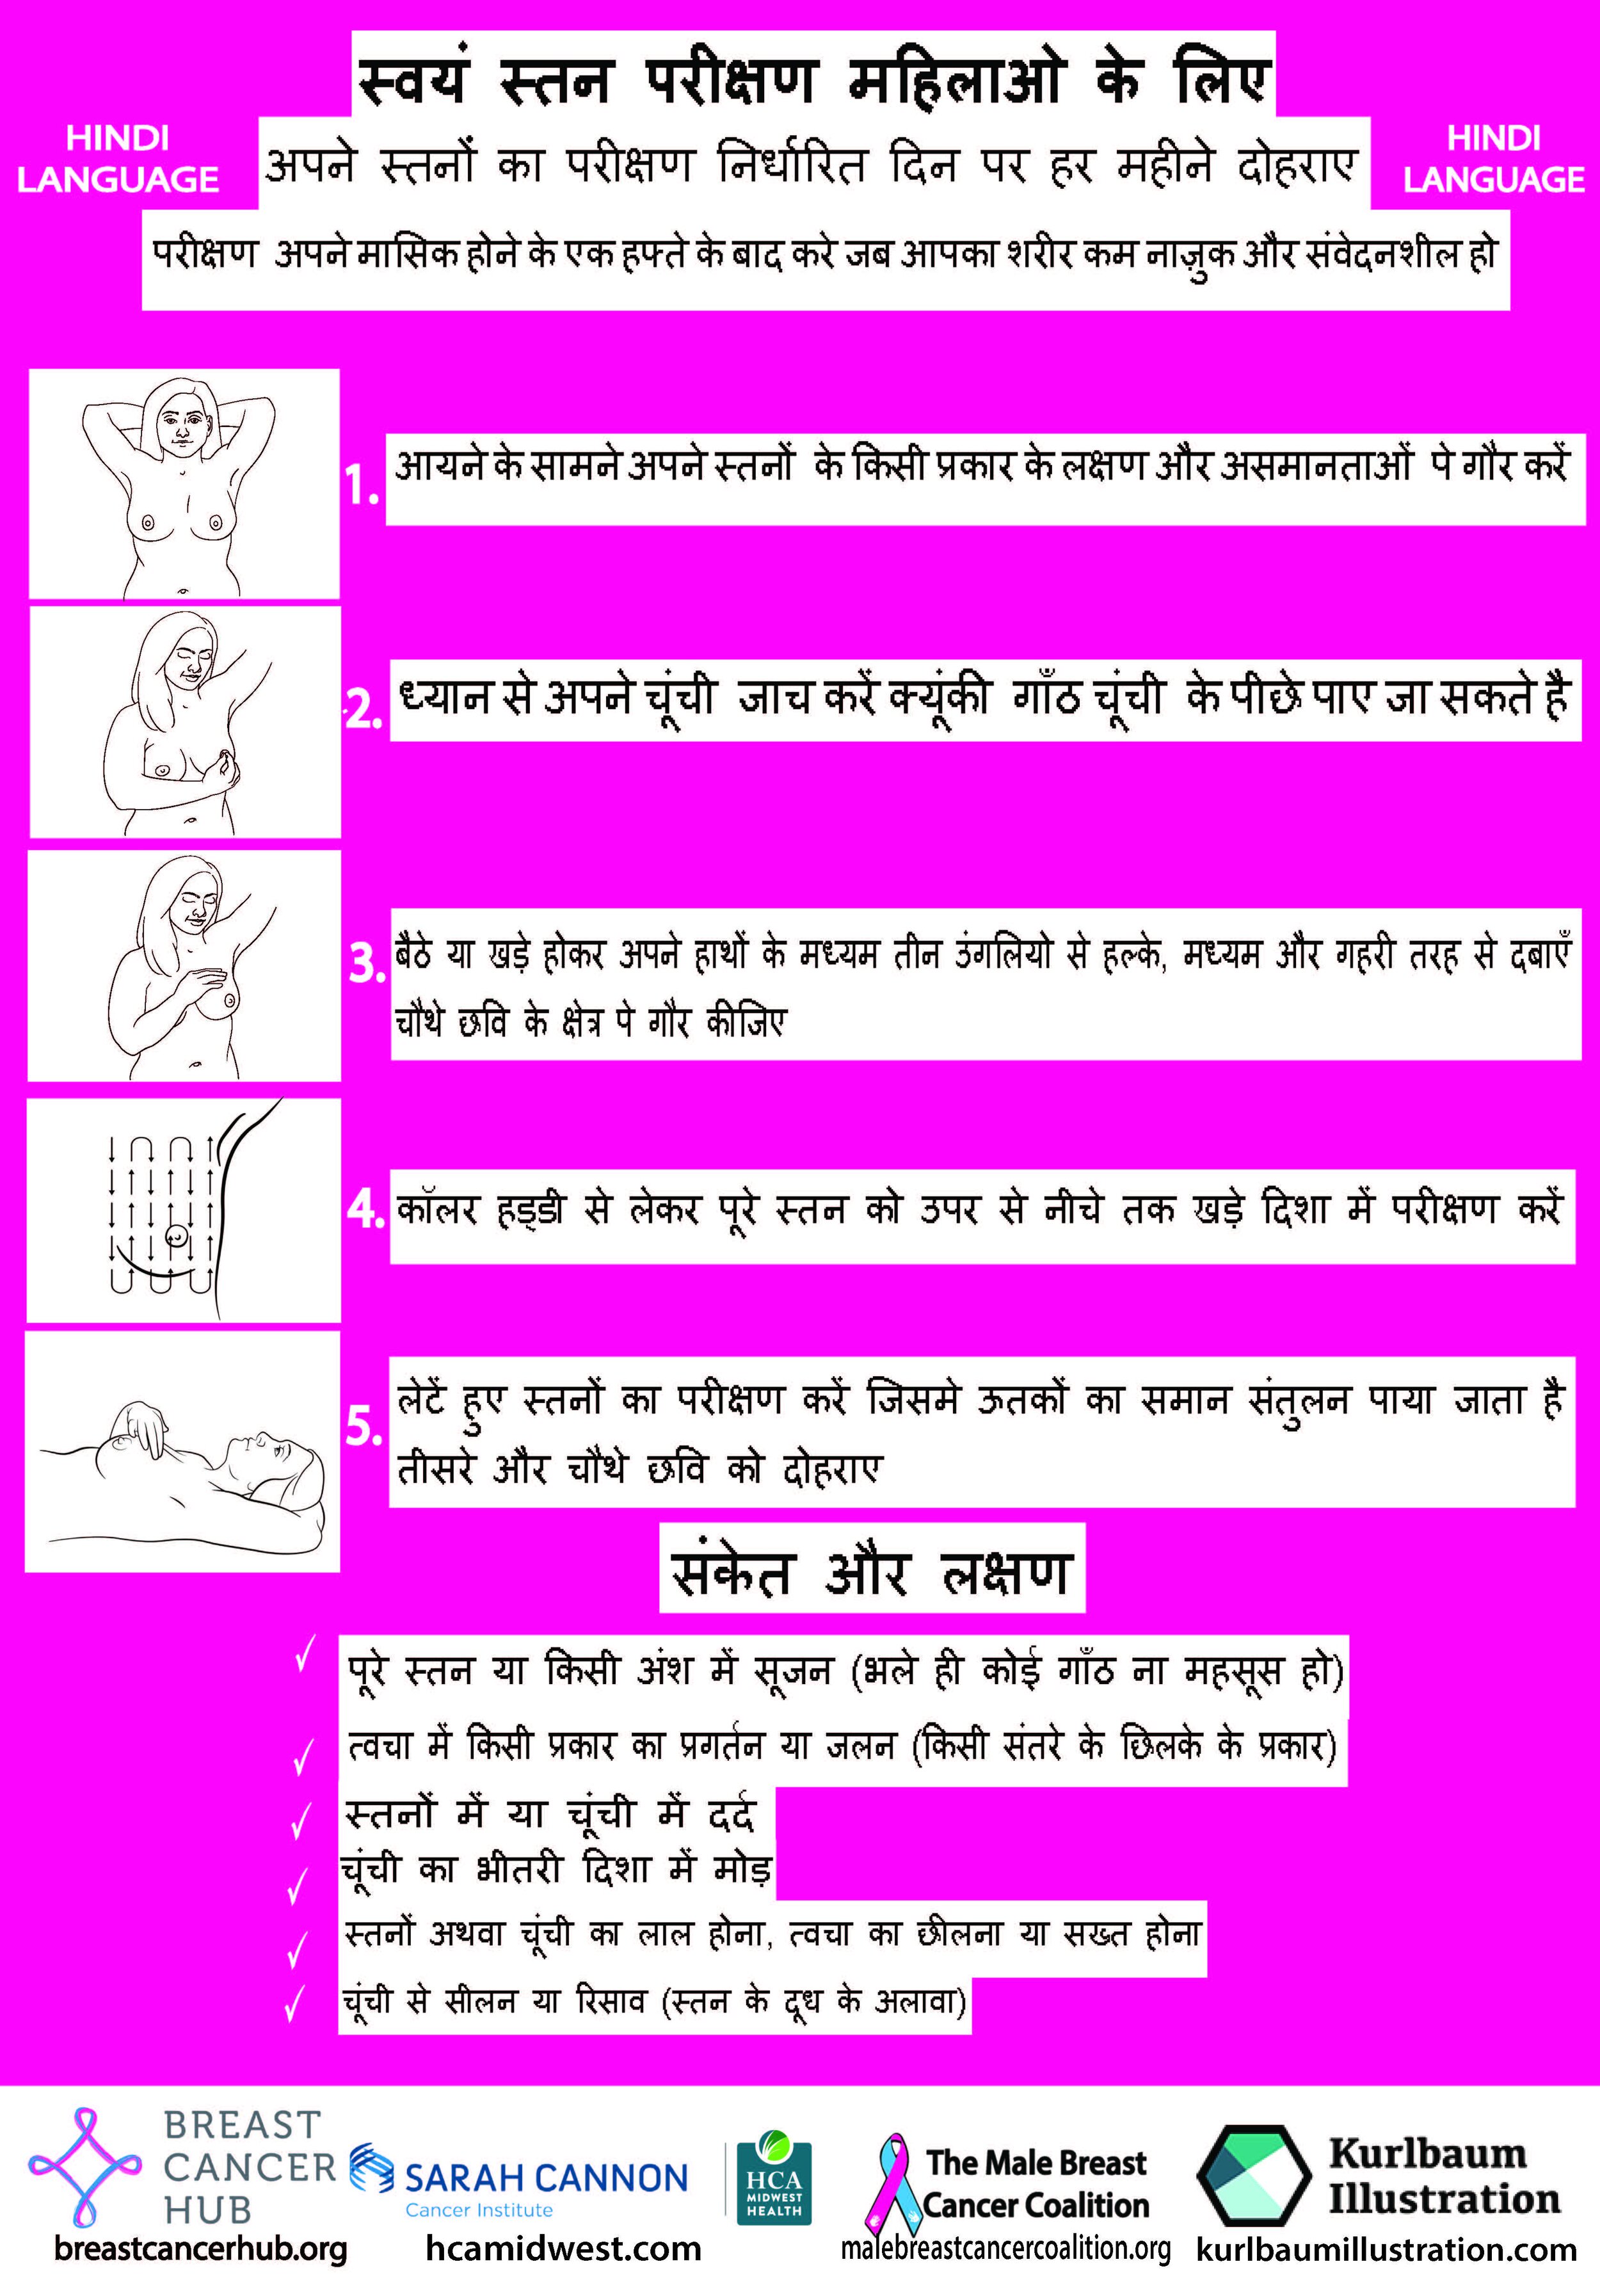 स्वयं स्तन परीक्षण महिलाओ के लिए
HINDI
LANGUAGE
अपने स्तनों का परीक्षण निर्धारित दिन पर हर महीने दोहराए
HINDI
LANGUAGE
परीक्षण अपने मासिक होने के एक हफ्ते के बाद करे जब आपका शरीर कम नाज़ुक और संवेदनशील हो
1. आयने के सामने अपने स्तनों के किसी प्रकार के लक्षण और असमानताओं पे गौर करें
2. ध्यान से अपने चूंची जाच करें क्यूंकी गाँठ चूंची के पीछे पाए जा सकते है
3. बैठे या खड़े होकर अपने हाथों के मध्यम तीन उंगलियो से हल्के, मध्यम और गहरी तरह से दबाएँ
चौथे छवि के क्षेत्र पे गौर कीजिए
4. कॉलर हड्डी से लेकर पूरे स्तन को उपर से नीचे तक खड़े दिशा में परीक्षण करें
5. लेटें हुए स्तनों का परीक्षण करें जिसमे ऊतकों का समान संतुलन पाया जाता है
तीसरे और चौथे छवि को दोहराए
संकेत और लक्षण
✓ पूरे स्तन या किसी अंश में सूजन (भले ही कोई गाँठ ना महसूस हो)
✓ त्वचा में किसी प्रकार का प्रगर्तन या जलन (किसी संतरे के छिलके के प्रकार)
✓ स्तनों में या चूंची में दर्द
✓ चूंची का भीतरी दिशा में मोड़
✓ स्तनों अथवा चूंची का लाल होना, त्वचा का छीलना या सख्त होना
✓ चूंची से सीलन या रिसाव (स्तन के दूध के अलावा)
BREAST
CANCER
HUB
breastcancerhub.org
SARAH CANNON
Cancer Institute
HCA
MIDWEST
HEALTH
hcamidwest.com
The Male Breast
Cancer Coalition
malebreastcancercoalition.org
Kurlbaum
Illustration
kurlbaumillustration.com